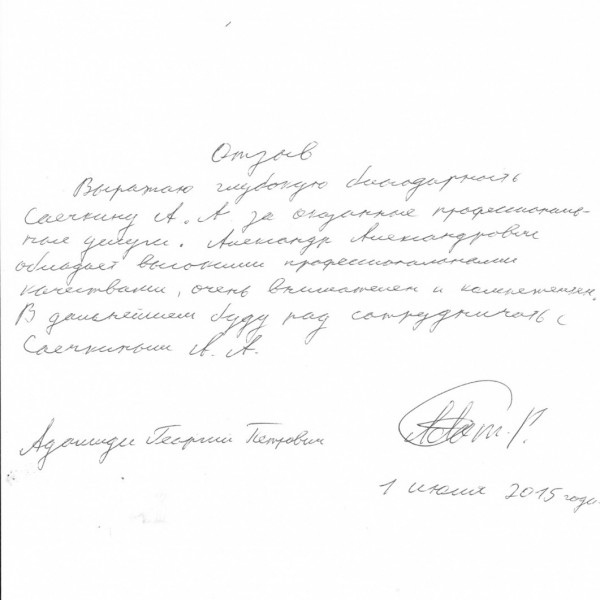 Отзыв
Выражаю глубокую благодарность
Саечкину А. А за оказанные профессиональ-
ные услуги. Александр Александрович
обладает высокими профессиональными
качествами, очень внимателен и компетентен.
В дальнейшем буду рад сотрудничать с
Саечкиным А. А.
Георгий Петрович
1 июля 2015 года